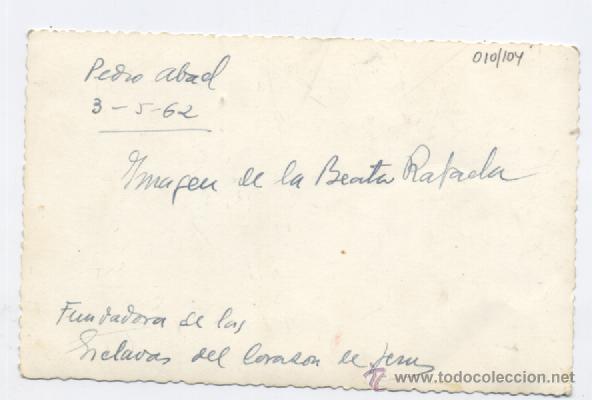 010/104
Pedro Abad
3-5-62
Imagen de la Beata Rafaela
Fundadora de las
Esclavas del Corazon de Jesus
www.todocoleccion.net